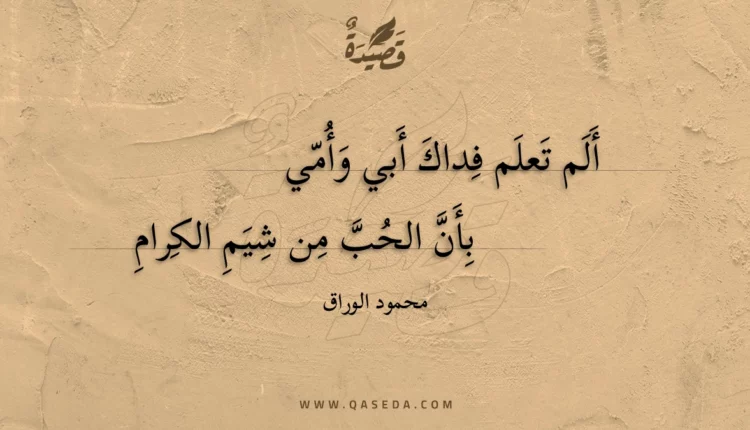 قَصِيدَةٌ
أَلَم تَعلَم فِداكَ أَبي وَأُمّي
بِأَنَّ الحُبَّ مِن شِيَمِ الكِرامِ
محمود الوراق
WWW.QASEDA.COM